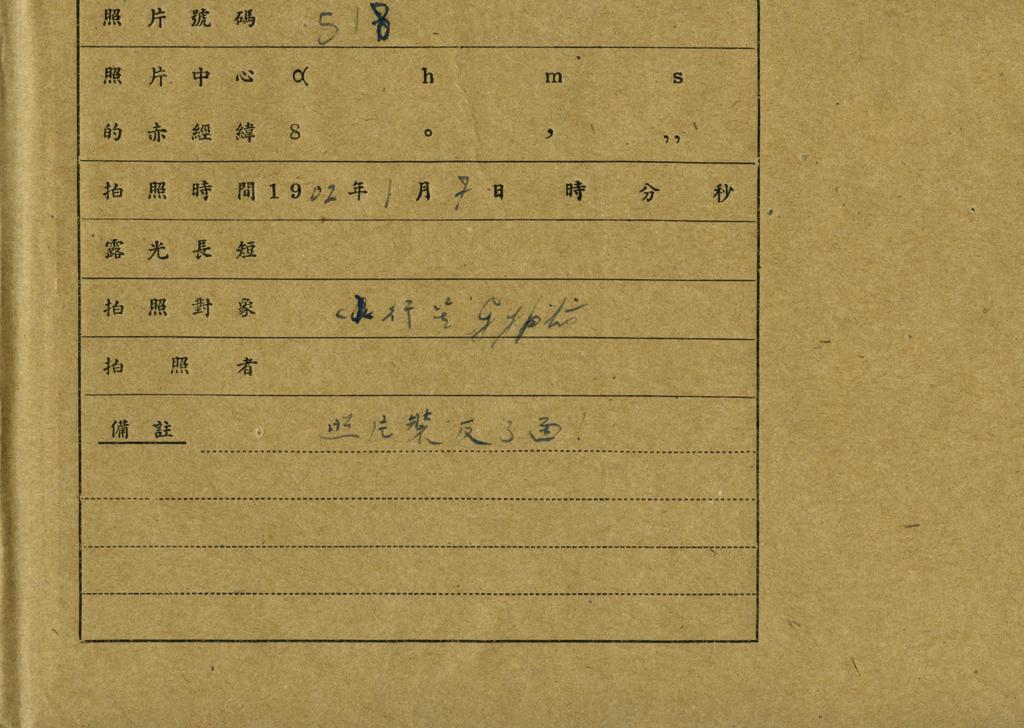 照片號碼 518
照片中心 α h m s
的赤經緯 δ ° ′ ″
拍照時間 1902年1月7日 時 分 秒
露光長短
拍照對象 小行星
拍照者
備註 照片裝反了面!